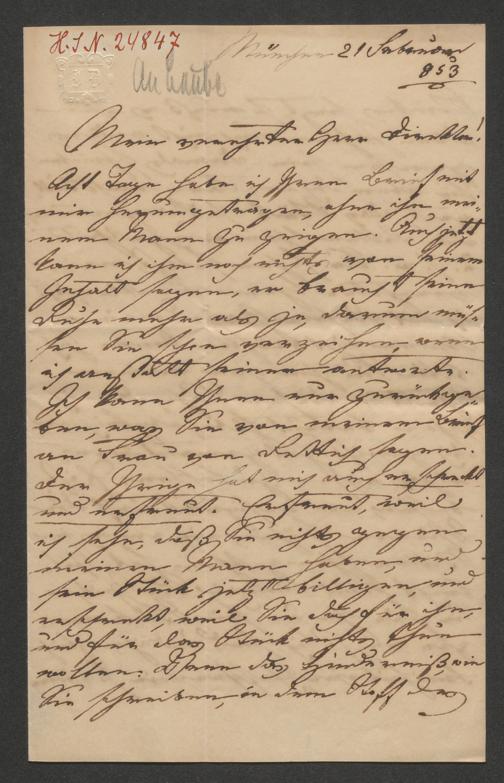 H.I.N. 24847
An Laube
München 21 Februar
853
Mein verehrter Herr Direktor!
Acht Tage habe ich Ihren Brief mit
mir herumgetragen, ohne ihn mei-
nem Mann zu zeigen. Auch jetzt
kann ich ihm noch nichts von seinem
Inhalt sagen, er braucht seine
Ruhe mehr als je, darum müs-
sen Sie schon verzeihen, wenn
ich anstatt seiner antworte.
Ich kann Ihnen nur zurückge-
ben, was Sie von meinem Brief
an Frau von Rettich sagen.
Der Ihrige hat mich auch erschreckt
und erfreut. Erfreut, weil
ich sehe, daß Sie nichts gegen
meinen Mann haben, und
sein Stück jetzt billigen, und
erschreckt, weil Sie doch für ihn,
und für das Stück nichts thun
wollen. Denn das Hinderniß, wie
Sie schreiben, in dem Stoff des